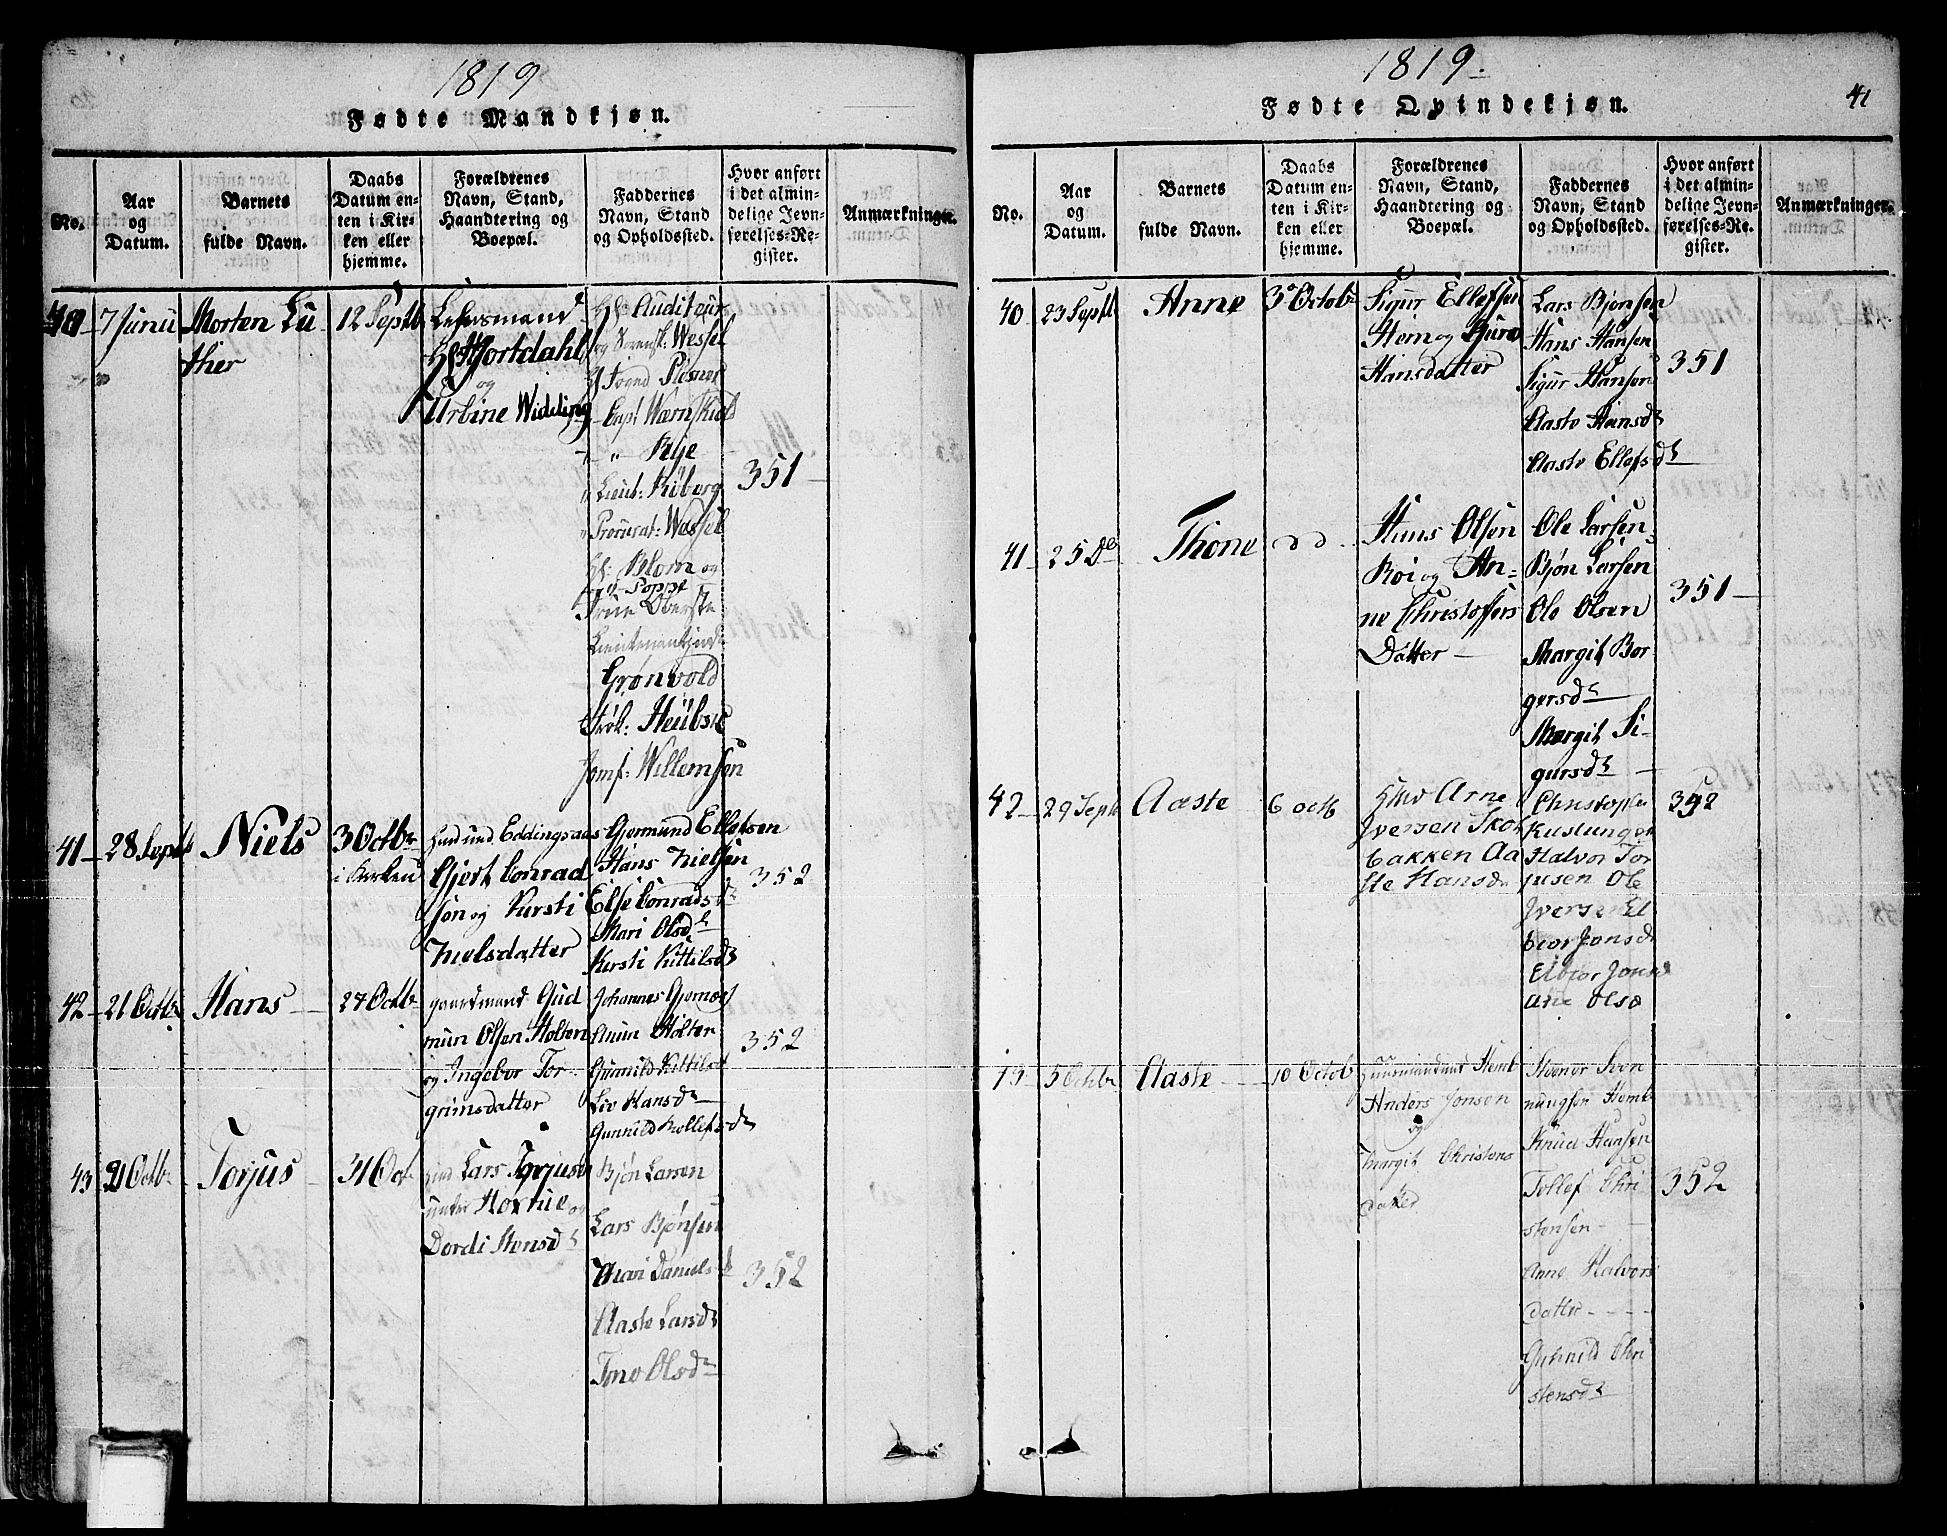 1819
Fødte Mandkjøn.
No.
Aar
og
Datum.
Barnets
fulde Navn.
Daabs
Datum en-
ten i Kir-
ken eller
hjemme.
Forældrenes
Navn, Stand,
Haandtering og
Boepæl.
Faddernes
Navn, Stand
og Opholdssted.
Hvor anført
i det almin-
delige Jevn-
førelses-Re-
gister.
Anmærkninger.
40 7 Junii
Morten Lu
thier
12 Septb
Lensmand
Hjortdahl
og
Urbine Widding
Hr Auditeur
og Sorensk: Wessel
Plesner
Capt Wærnskiold
" Rye
Lieut: Kiborg
Procurat: Wessel
Hr: Blom og
Poppe
Frue Oberste
Lieutenantinde
Grønvold
Frøk: Heübsc
Jomf: Willemsen
351
41 28 Septb
Niels
3 Octbr
i Kirken
Eddingsaas
Gjert Conrad
søn og Kirsti
Nielsdatter
Gjermund Ellefsen
Hans Nielsen
Else Conradsd
Mari Olsdr
Kirsti Kittilsdr
352
42 21 Octbr
Hans
27 Octbr
gaardmand Gud
mun Olsen Holten
og Ingebor Tor
grimsdatter
Johannes Gjernæs
Amun Holten
Gunnild Kittilsd
Liv Hansdr
Gunnild Rollefsdr
352
43 21 Octbr
Torjus
31 Oct
Lars Torjusen
Hortue og
Dordi Stensdr
Bjøn Larsen
Lars Bjønsen
Mari Danielsdr
Aaste Larsdr
Tone Olsdr
352
1819.
41
Fødte Qvindekjøn.
No.
Aar
og
Datum.
Barnets
fulde Navn.
Daabs
Datum en-
ten i Kir-
ken eller
hjemme.
Forældrenes
Navn, Stand,
Haandtering og
Boepæl.
Faddernes
Navn, Stand
og Opholdssted.
Hvor anført
i det almin-
delige Jevn-
førelses-Re-
gister.
Anmærkninger.
40 23 Septb
Anne
3 Octobr
Sigur Ellefsen
Hem og Guro
Hansdatter
Lars Bjønsen
Hans Hansen
Sigur Hansen
Aaste Hansdr
Aaste Ellefsdr
351
41 25 Do
Thone
D D
Hans Olsen
Roi og An-
ne Christoffers
Datter
Ole Larsen
Bjøn Larsen
Ole Olsen
Margit Bor
gersdr
Margit Si-
gursdr
351
42 29 Septb
Aaste
6 octb
Arne
Iversen Skot
bakken Aa
ste Hansdr
Christoph
Halvor Tor
jusen Ole
Iversen El
bior Jonsdr
Elbior Jonsd
Ane Olsd
352
5 Octbr
Aaste
10 Octob
Huusmand Hemb
Anders Jonsen
og
Margit Christens
datter
Steenor Sven
nungsen Hemb
Knud Hansen
Tollef Chri
stensen
Anne Halvors
datter
Gunnild Chri
stensdr
352